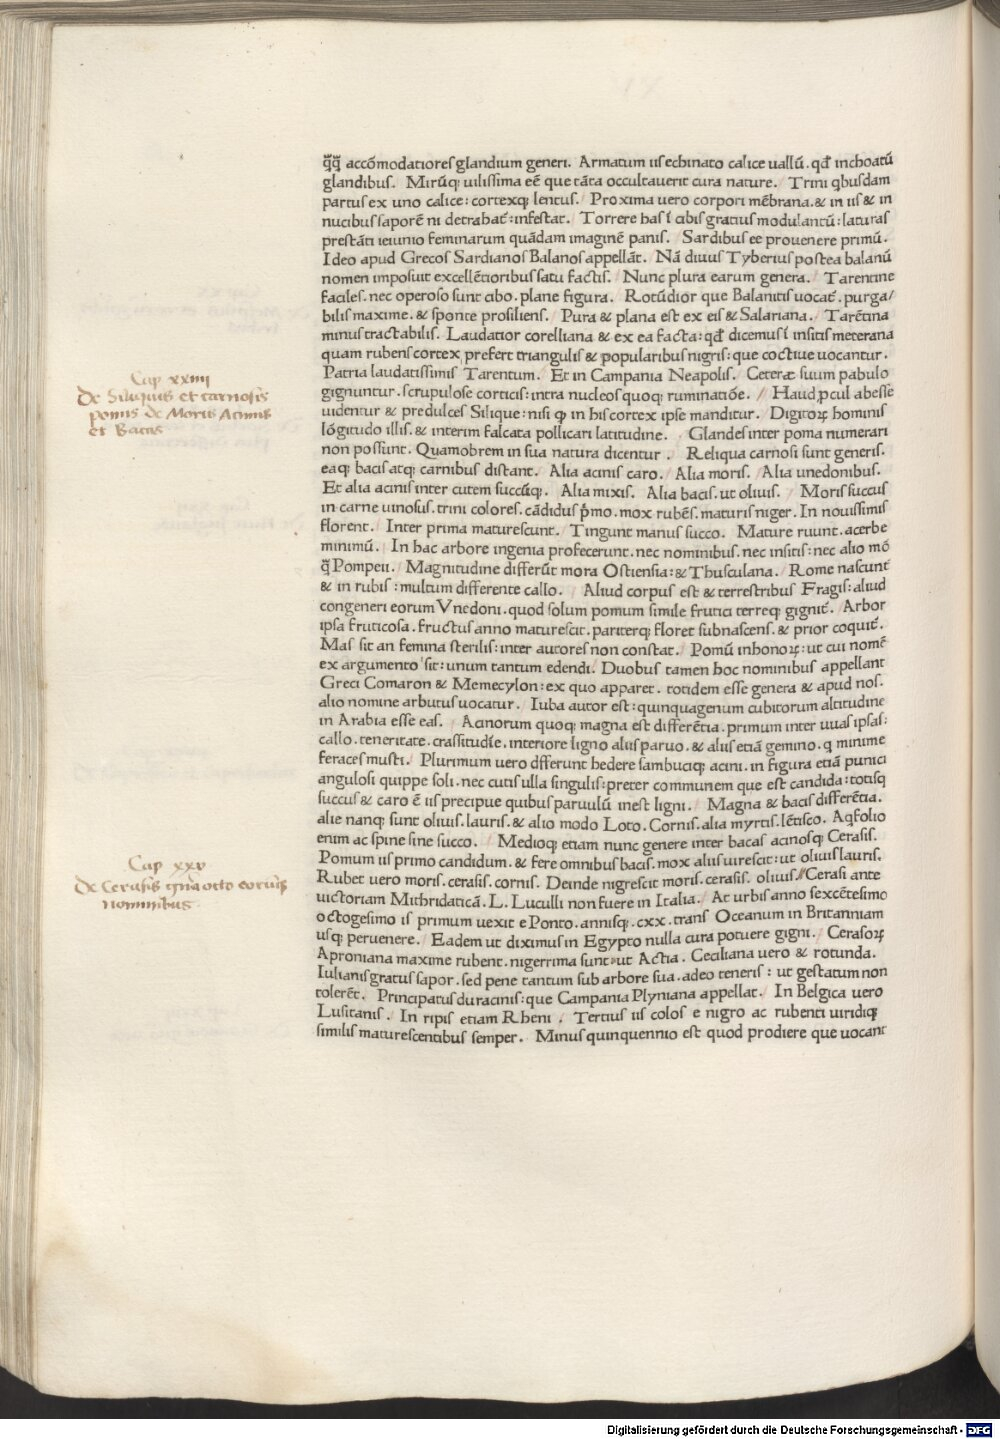 q̄q̄ accōmodatiores glandium generi. Armatum iis echinato calice uallū. qđ inchoatū
glandibus. Mirūq; uilissima eē que tāta occultauerit cura nature. / Trini qbusdam
partus ex uno calice: cortexq; lentus. / Proxima uero corpori mēbrana. & in iis & in
nucibus saporē ni detrahat̄: infestat. / Torrere has ī cibis gratius modulantū: laturas
prestāti ieiunio feminarum quādam imaginē panis. / Sardibus ee prouenere primū.
Ideo apud Grecos Sardianos Balanos appellāt. / Nā diuus Tyberius postea balanū
nomen imposuit excellētioribus satu factis. / Nunc plura earum genera. / Tarentine
faciles. nec operoso sunt cibo. plane figura. / Rotūdior que Balanitis uocat̄. purga/
bilis maxime. & sponte prosiliens. / Pura & plana est ex eis & Salariana. / Tarētina
minus tractabilis. / Laudatior corelliana & ex ea facta: qđ dicemus ī insitis meterana
quam rubens cortex prefert triangulis & popularibus nigris: que coctiue uocantur.
Patria laudatissimis Tarentum. / Et in Campania Neapolis. / Ceteræ suum pabulo
gignuntur. scrupulose corticis: intra nucleos quoq; ruminatiōe. // Haud ꝓcul abesse
Cap xxiiii
De Siliquis et carnosis
pomis de Moris Acinis
et Bacis
uidentur & predulces Silique: nisi ꝙ in his cortex ipse manditur. / Digitoꝝ hominis
lōgitudo illis. & interim falcata pollicari latitudine. / Glandes inter poma numerari
non possunt. Quamobrem in sua natura dicentur. / Reliqua carnosi sunt generis.
eaq; bacis atq; carnibus distant. / Alia acinis caro. / Alia moris. / Alia unedonibus.
Et alia acinis inter cutem succūq;. / Alia mixis. / Alia bacis. ut oliuis. / Moris succus
in carne uinosus. trini colores. cādidus p̄mo. mox rubēs. maturis niger. In nouissimis
florent. / Inter prima maturescunt. / Tingunt manus succo. / Mature ruunt. acerbe
minimū. / In hac arbore ingenia profecerunt. nec nominibus. nec insitis: nec alio mō
q̄ Pompeii. / Magnitudine differūt mora Ostiensia: & Thusculana. / Rome nascunt̄
& in rubis: multum differente callo. / Aliud corpus est & terrestribus Fragis: aliud
congeneri eorum Vnedoni. quod solum pomum simile frutici terreq; gignit̄. / Arbor
ipsa fruticosa. fructus anno maturescit. pariterq; floret subnascens. & prior coquit̄.
Mas sit an femina sterilis: inter autores non constat. / Pomū inhonoꝝ: ut cui nomē
ex argumento sit: unum tantum edendi. / Duobus tamen hoc nominibus appellant
Greci Comaron & Memecylon: ex quo apparet. totidem esse genera & apud nos.
alio nomine arbutus uocatur. / Iuba autor est: quinquagenum cubitorum altitudine
in Arabia esse eas. / Acinorum quoq; magna est differētia. primum inter uuas ipsas:
callo. teneritate. crassitudīe. interiore ligno aliis paruo. & aliis etiā gemino. q minime
feraces musti. / Plurimum uero dfferunt hedere sambuciq; acini. in figura etiā punici
angulosi quippe soli. nec cutis ulla singulis: preter communem que est candida: totisq;
succus & caro ē iis precipue quibus paruulū inest ligni. / Magna & bacis differētia.
alie nanq; sunt oliuis. lauris. & alio modo Loto. Cornis. alia myrtis. lētisco. Aqfolio
enim ac spine sine succo. / Medioq; etiam nunc genere inter bacas acinosq; Cerasis.
Pomum iis primo candidum. & fere omnibus bacis. mox aliis uirescit: ut oliuis lauris.
Rubet uero moris. cerasis. cornis. Deinde nigrescit moris. cerasis. oliuis. // Cerasi ante
Cap xxv
De Cerasis gn̄a octo eorūq;
nominibus
uictoriam Mithridaticā. L. Luculli non fuere in Italia. / At urbis anno sexcētesimo
octogesimo is primum uexit e Ponto. annisq; .cxx. trans Oceanum in Britanniam
usq; peruenere. / Eadem ut diximus in Egypto nulla cura potuere gigni. / Cerasoꝝ
Aproniana maxime rubent. nigerrima sunt ut Actia. Ceciliana uero & rotunda.
Iulianis gratus sapor. sed pene tantum sub arbore sua. adeo teneris: ut gestatum non
tolerēt. / Principatus duracinis: que Campania Plyniana appellat. / In Belgica uero
Lusitanis. / In ripis etiam Rheni. / Tertius iis colos e nigro ac rubenti uiridiq;
similis maturescentibus semper. / Minus quinquennio est quod prodiere que uocant
Digitalisierung gefördert durch die Deutsche Forschungsgemeinschaft - DFG